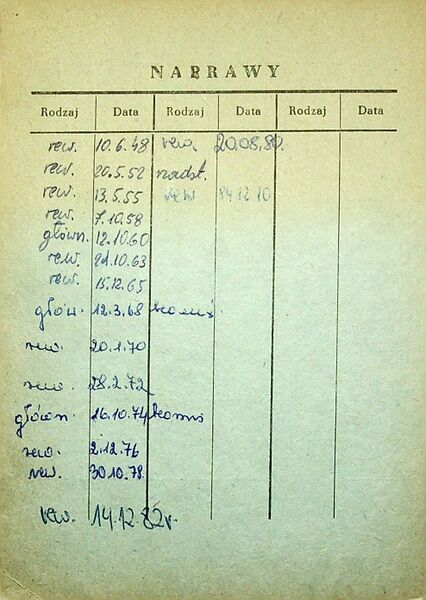 NAPRAWY
Rodzaj Data Rodzaj Data Rodzaj Data
rew. 10.6.48 rew. 20.08.80.
rew. 20.5.52
rew. 13.5.55 rew
rew. 7.10.58
główn. 12.10.60
rew. 21.10.63
rew. 15.12.65
głów. 12.3.68
rew. 20.1.70
rew. 28.2.72
główn. 16.10.74
rew. 2.12.76
rew. 30.10.78.
rew. 14.12.82r.